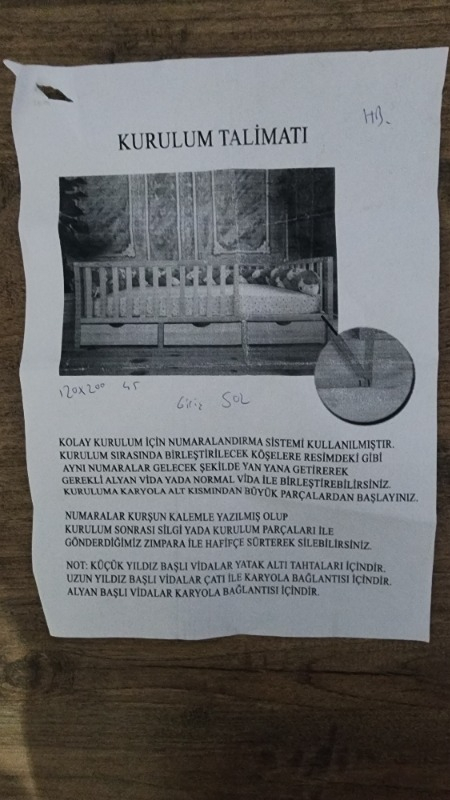 HB.
KURULUM TALİMATI
120x200 45
Giriş SOL
KOLAY KURULUM İÇİN NUMARALANDIRMA SİSTEMİ KULLANILMIŞTIR.
KURULUM SIRASINDA BİRLEŞTİRİLECEK KÖŞELERE RESİMDEKİ GİBİ
AYNI NUMARALAR GELECEK ŞEKİLDE YAN YANA GETİREREK
GEREKLİ ALYAN VİDA YADA NORMAL VİDA İLE BİRLEŞTİREBİLİRSİNİZ.
KURULUMA KARYOLA ALT KISMINDAN BÜYÜK PARÇALARDAN BAŞLAYINIZ.
NUMARALAR KURŞUN KALEMLE YAZILMIŞ OLUP
KURULUM SONRASI SİLGİ YADA KURULUM PARÇALARI İLE
GÖNDERDİĞİMİZ ZIMPARA İLE HAFİFÇE SÜRTEREK SİLEBİLİRSİNİZ.
NOT: KÜÇÜK YILDIZ BAŞLI VİDALAR YATAK ALTI TAHTALARI İÇİNDİR.
UZUN YILDIZ BAŞLI VİDALAR ÇATI İLE KARYOLA BAĞLANTISI İÇİNDİR.
ALYAN BAŞLI VİDALAR KARYOLA BAĞLANTISI İÇİNDİR.